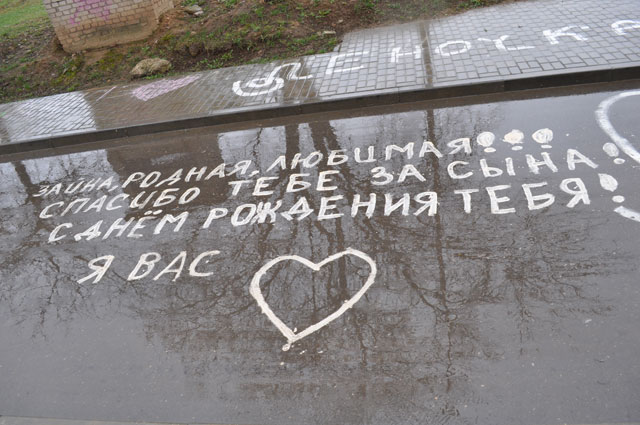 Леночка
ЗАИНА, РОДНАЯ, ЛЮБИМАЯ!!!
СПАСИБО ТЕБЕ ЗА СЫНА!
С ДНЁМ РОЖДЕНИЯ ТЕБЯ!
Я ВАС